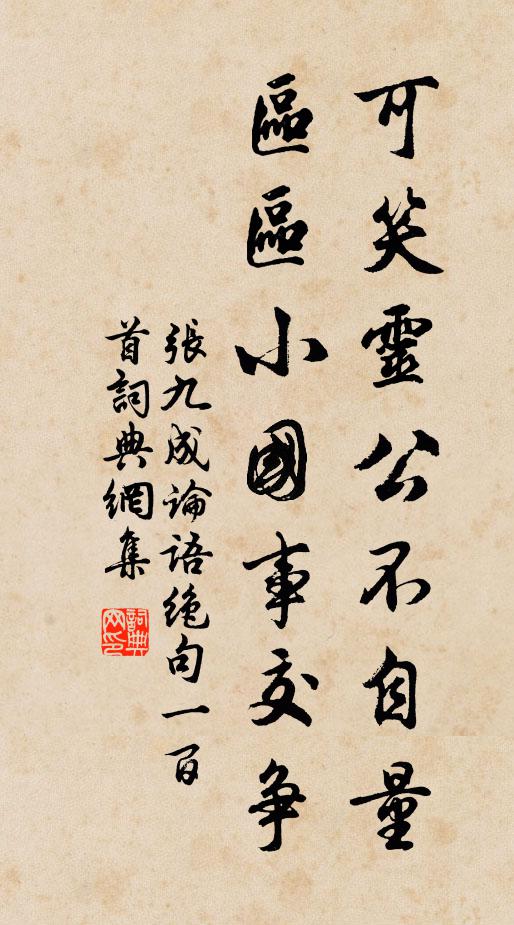 可笑靈公不自量
區區小國事交争
張九成論語絶句一百
首詞典網集
詞典网印